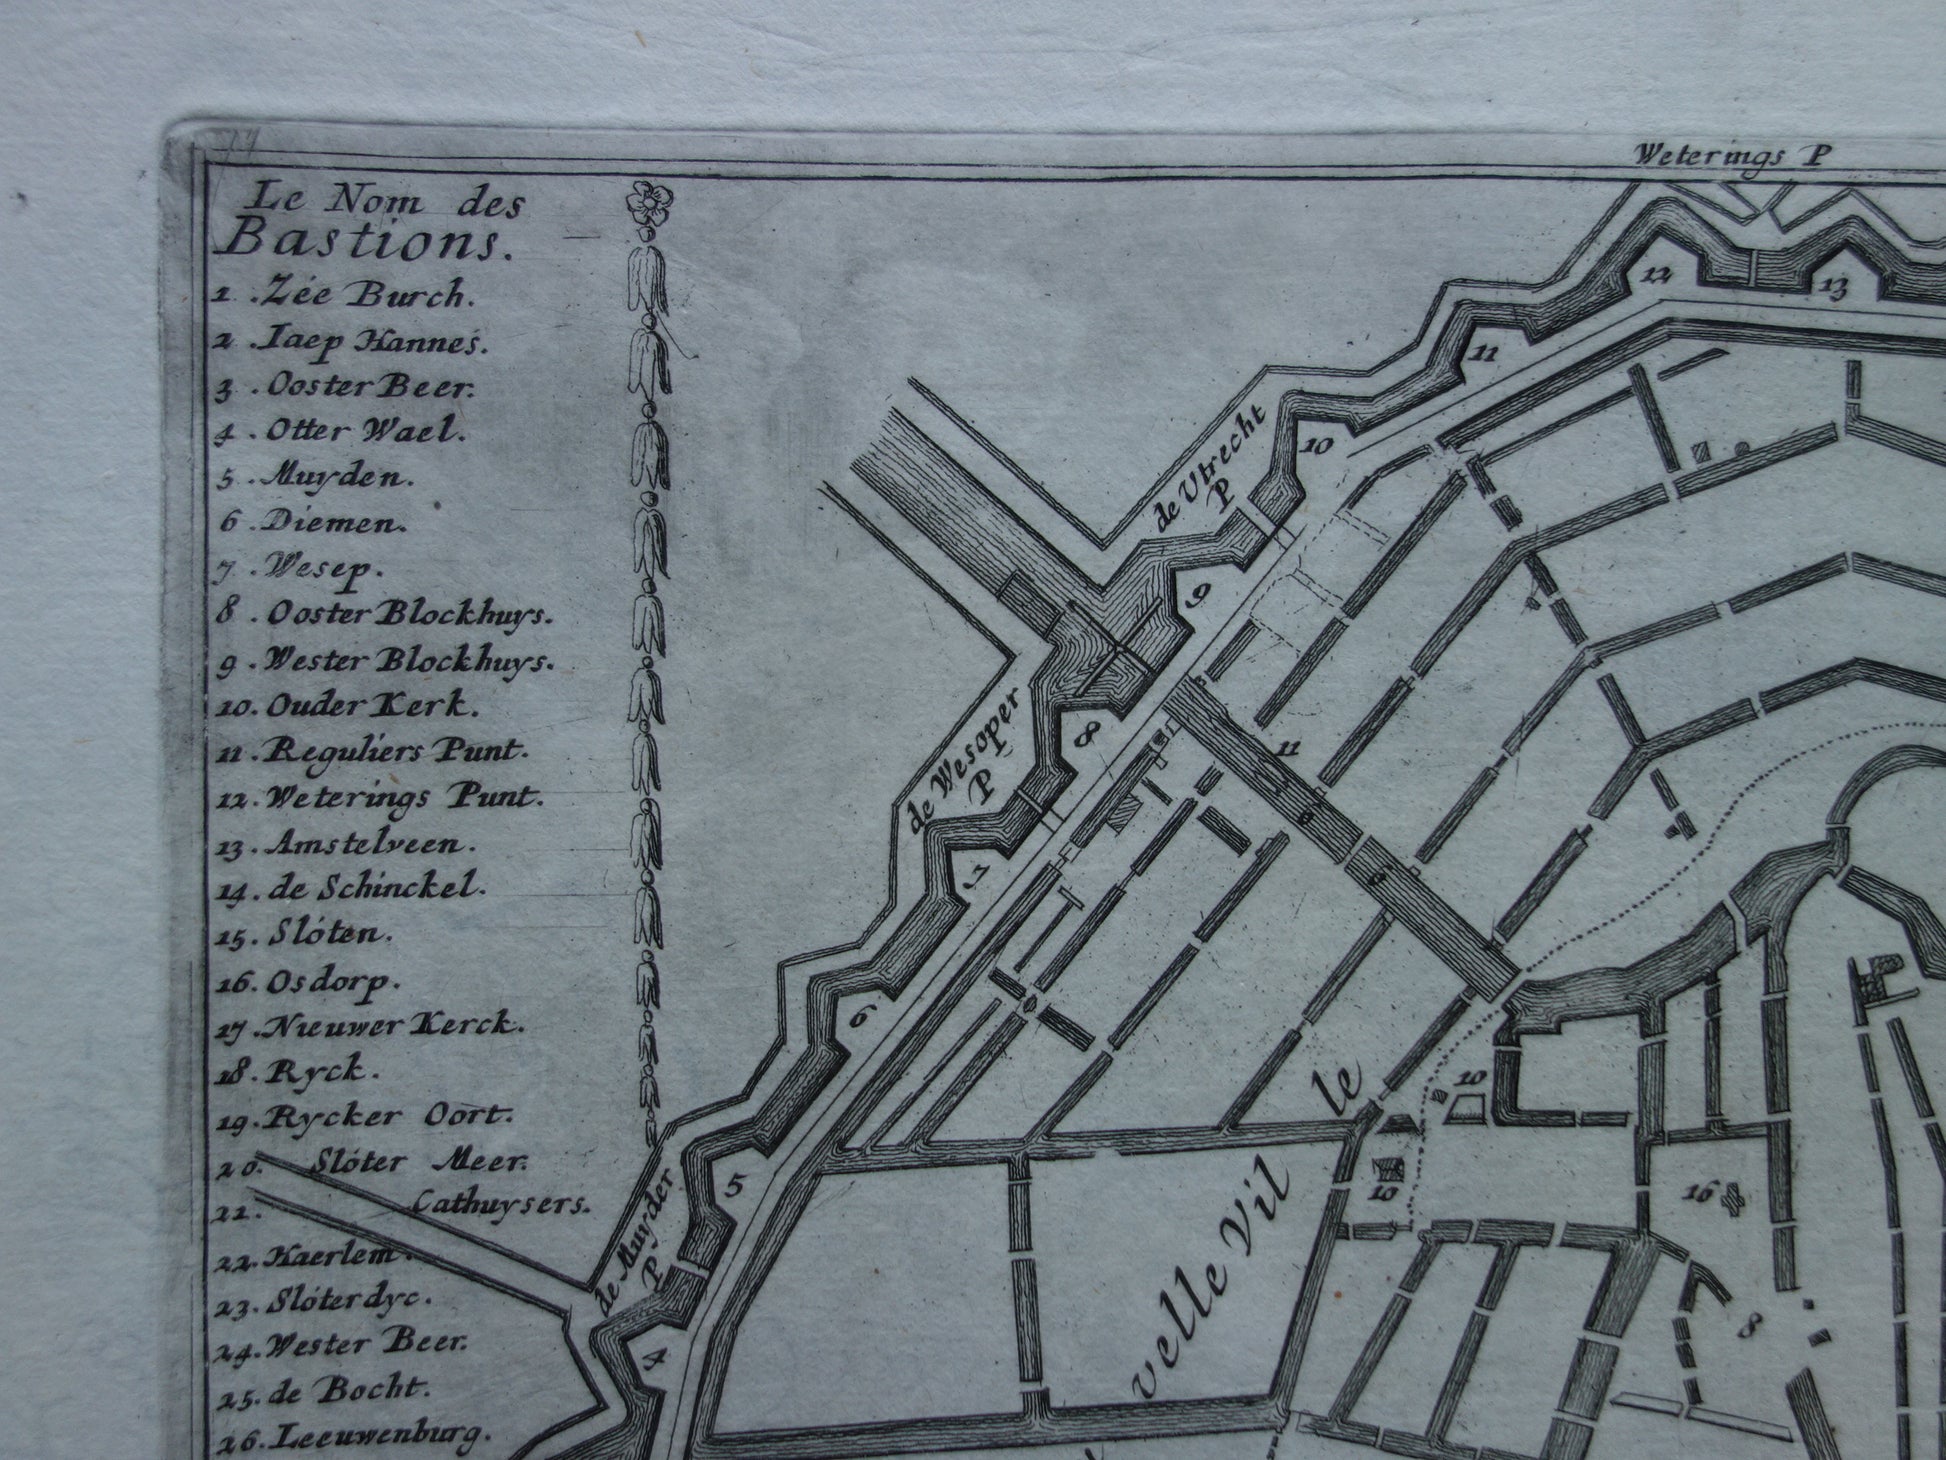 Weterings P
Le Nom des
Bastions.
1 . Zée Burch.
2 . Iaep Hannes.
3 . Ooster Beer.
4 . Otter Wael.
5 . Muyden.
6 . Diemen.
7 . Wesep.
8 . Ooster Blockhuys.
9 . Wester Blockhuys.
10. Ouder Kerk.
11. Reguliers Punt.
12. Weterings Punt.
13. Amstelveen.
14. de Schinckel.
15. Slóten.
16. Osdorp.
17. Nieuwer Kerck.
18. Ryck.
19. Rycker Oort.
20. Slóter Meer.
21. Cathuysers.
22. Haerlem.
23. Slóterdyc.
24. Wester Beer.
25. de Bocht.
26. Leeuwenburg.
12
13
11
10
de Utrecht
P
9
8
de Wesoper
P
7
6
5
de Muyder
P
4
11
10
10
16
8
velle Vil
le